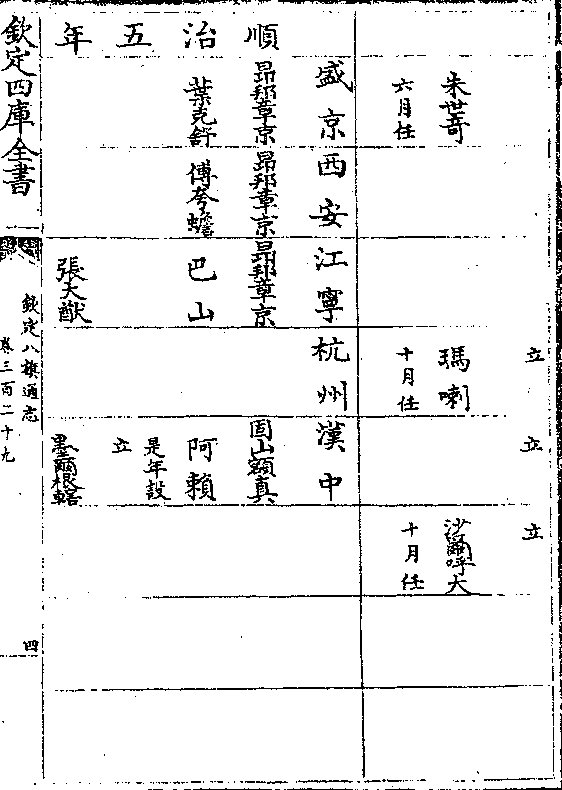 立
立
立
朱世哥
六月任
瑪喇
十月任
沙爾呼大
十月任
順治五年
盛京
昂邦章京
葉克舒
西安
昂邦章京
傅夸蟾
江寧
昂邦章京
巴山
張大猷
杭州
漢中
固山額真
阿賴
是年設
立
墨爾根轄
欽定四庫全書
欽定八旗通志
卷三百二十九
四